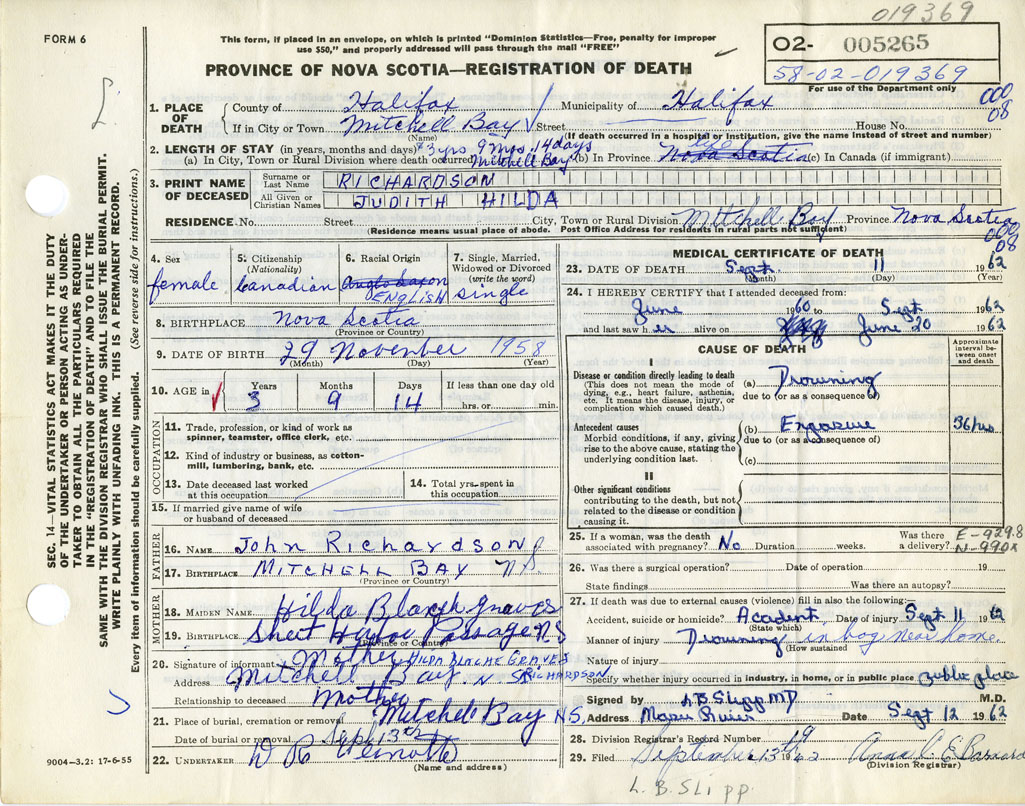 019369
FORM 6
This form, if placed in an envelope, on which is printed "Dominion Statistics—Free, penalty for improper
use $50," and properly addressed will pass through the mail "FREE"
O2- 005265
58-02-019369
For use of the Department only
PROVINCE OF NOVA SCOTIA—REGISTRATION OF DEATH
000
08
1. PLACE OF DEATH
County of Halifax Municipality of Halifax
If in City or Town Mitchell Bay Street House No.
(Name) (If death occurred in a hospital or institution, give the name instead of street and number)
2. LENGTH OF STAY (in years, months and days) 3 yrs 9 mos. 14 days
(a) In City, Town or Rural Division where death occurred Mitchell Bay (b) In Province Nova Scotia (c) In Canada (if immigrant)
3. PRINT NAME OF DECEASED
Surname or Last Name RICHARDSON
All Given or Christian Names JUDITH HILDA
RESIDENCE. No. Street City, Town or Rural Division Mitchell Bay Province Nova Scotia
(Residence means usual place of abode. Post Office Address for residents in rural parts not sufficient)
000
08
4. Sex female
5. Citizenship (Nationality) Canadian
6. Racial Origin Anglo Saxon ENGLISH
7. Single, Married, Widowed or Divorced (write the word) single
8. BIRTHPLACE Nova Scotia
(Province or Country)
9. DATE OF BIRTH 29 November 1958
(Month) (Day) (Year)
10. AGE in Years 3 Months 9 Days 14 If less than one day old hrs. or min.
OCCUPATION
11. Trade, profession, or kind of work as spinner, teamster, office clerk, etc.
12. Kind of industry or business, as cotton-mill, lumbering, bank, etc.
13. Date deceased last worked at this occupation
14. Total yrs. spent in this occupation
15. If married give name of wife or husband of deceased
FATHER
16. NAME John Richardson
17. BIRTHPLACE MITCHELL BAY NS
(Province or Country)
MOTHER
18. MAIDEN NAME Hilda Graves
19. BIRTHPLACE Passage NS
(Province or Country)
20. Signature of informant Mother HILDA BLACHE GRAVES RICHARDSON
Address Mitchell Bay. N S
Relationship to deceased Mother
21. Place of burial, cremation or removal Mitchell Bay N.S.
Date of burial or removal Sept 13th
22. UNDERTAKER D R
(Name and address)
9004—3.2: 17-6-55
MEDICAL CERTIFICATE OF DEATH
23. DATE OF DEATH Sept. 11 1962
(Month) (Day) (Year)
24. I HEREBY CERTIFY that I attended deceased from:
June 1960 to Sept 1962
and last saw her alive on June 20 1962
CAUSE OF DEATH
Approximate interval between onset and death
I
Disease or condition directly leading to death
(This does not mean the mode of dying, e.g., heart failure, asthenia, etc. It means the disease, injury, or complication which caused death.)
(a) Drowning
due to (or as a consequence of)
Antecedent causes
Morbid conditions, if any, giving rise to the above cause, stating the underlying condition last.
(b) Exposure 36 hrs
due to (or as a consequence of)
(c)
II
Other significant conditions
contributing to the death, but not related to the disease or condition causing it.
25. If a woman, was the death associated with pregnancy? No Duration weeks. Was there a delivery?
E-929.8
N-990x
26. Was there a surgical operation? Date of operation 19
State findings Was there an autopsy?
27. If death was due to external causes (violence) fill in also the following:—
Accident, suicide or homicide? Accident Date of injury Sept 11 1962
(State which)
Manner of injury Drowning in bog near home
(How sustained
Nature of injury
Specify whether injury occurred in industry, in home, or in public place public place
Signed by L B Slipp MD M.D.
Address Date Sept 12 1962
28. Division Registrar's Record Number 19
29. Filed September 13th 1962
(Division Registrar)
L. B. SLIPP.
SEC. 14—VITAL STATISTICS ACT MAKES IT THE DUTY
OF THE UNDERTAKER OR PERSON ACTING AS UNDER-
TAKER TO OBTAIN ALL THE PARTICULARS REQUIRED
IN THE "REGISTRATION OF DEATH" AND TO FILE THE
SAME WITH THE DIVISION REGISTRAR WHO SHALL ISSUE THE BURIAL PERMIT.
WRITE PLAINLY WITH UNFADING INK. THIS IS A PERMANENT RECORD.
Every item of information should be carefully supplied. (See reverse side for instructions.)